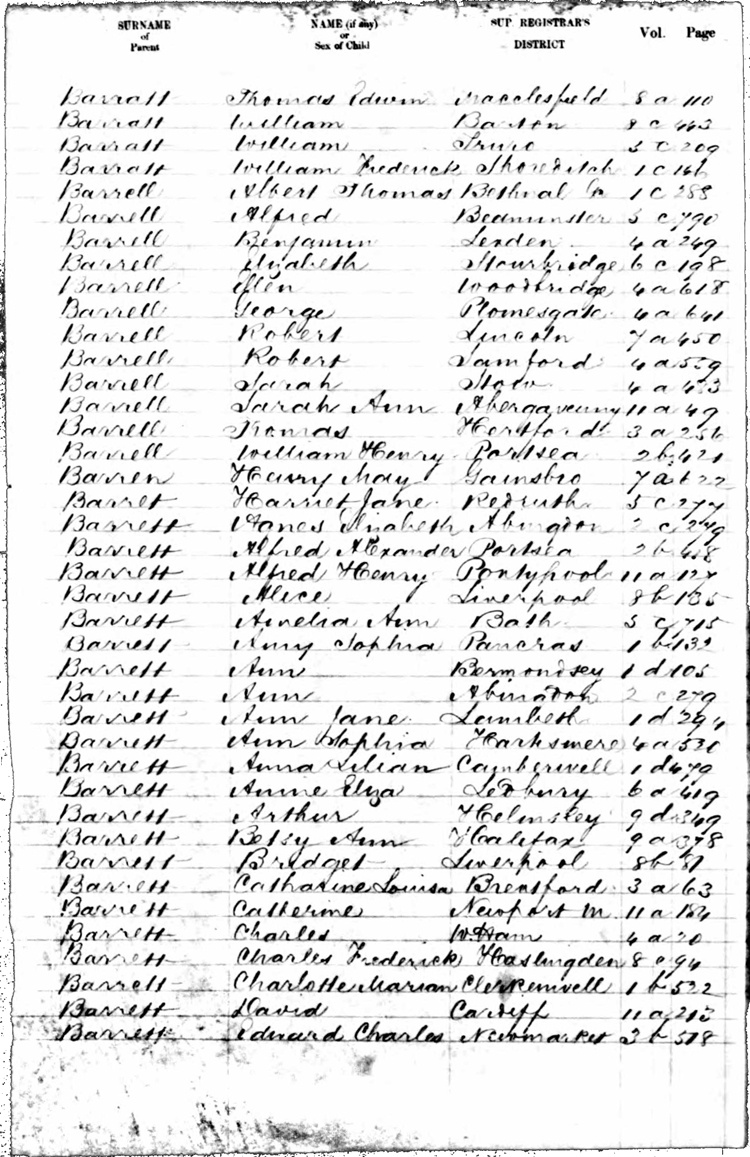 SURNAME of Parent NAME (if any) or Sex of Child SUP. REGISTRAR'S DISTRICT Vol. Page
Barratt Thomas Edwin Macclesfield 8 a 110
Barratt William Barton 8 c 443
Barratt William Truro 5 c 209
Barratt William Frederick Shoreditch 1 c 166
Barrell Albert Thomas Bethnal G. 1 c 288
Barrell Alfred Beaminster 5 c 790
Barrell Benjamin Lexden 4 a 249
Barrell Elizabeth Stourbridge 6 c 198
Barrell Ellen Woodbridge 4 a 618
Barrell George Plomesgate 4 a 641
Barrell Robert Lincoln 7 a 450
Barrell Robert Samford 4 a
Barrell Sarah Stow 4 a
Barrell Sarah Ann Abergavenny 11 a 49
Barrell Thomas Hertford 3 a 256
Barrell William Henry Portsea 2 b 421
Barren Henry May Gainsbro 7 a 622
Barret Harriet Jane Redruth 5 c 277
Barrett Agnes Elizabeth Abingdon 2 c 279
Barrett Alfred Alexander Portsea 2 b
Barrett Alfred Henry Pontypool 11 a 127
Barrett Alice Liverpool 8 b 135
Barrett Amelia Ann Bath 5 c 715
Barrett Amy Sophia Pancras 1 b 132
Barrett Ann Bermondsey 1 d 105
Barrett Ann Abingdon 2 c 279
Barrett Ann Jane Lambeth 1 d 294
Barrett Ann Sophia Hartismere 4 a 530
Barrett Anna Lilian Camberwell 1 d 479
Barrett Annie Eliza Ledbury 6 a 419
Barrett Arthur Helmsley 9 d 349
Barrett Betsy Ann Halifax 9 a 378
Barrett Bridget Liverpool 8 b 81
Barrett Catharine Louisa Brentford 3 a 63
Barrett Catherine Newport M. 11 a 184
Barrett Charles W. Ham 4 a 20
Barrett Charles Frederick Haslingden 8 e 94
Barrett Charlotte Marian Clerkenwell 1 b 522
Barrett David Cardiff 11 a 213
Barrett Edward Charles Newmarket 3 b 518